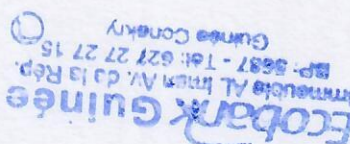 Ecobank Guinée
Immeuble AL Iman Av. de la Rép.
BP: 5687 - Tél: 627 27 27 15
Guinée Conakry